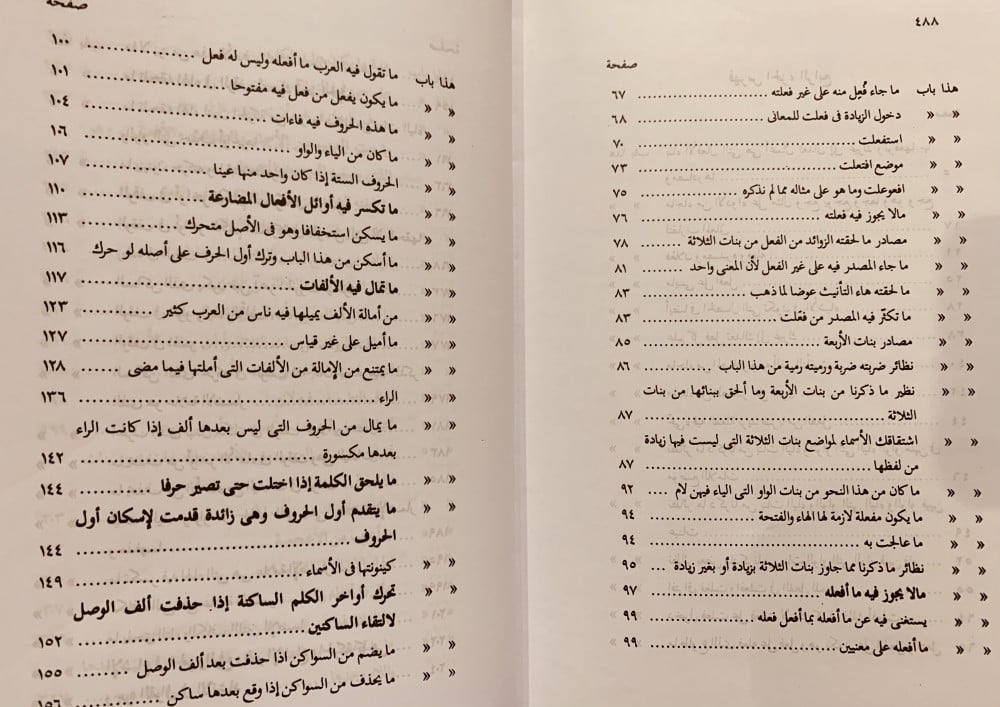 ٤٨٨
صفحة
هذا باب ما جاء فُعِل منه على غير فعلته ..... ٦٧
» » دخول الزيادة فى فعلت للمعانى ..... ٦٨
» » استفعلت ..... ٧٠
» » موضع افتعلت ..... ٧٣
» » افعوعلت وما هو على مثاله مما لم نذكره ..... ٧٥
» » مالا يجوز فيه فعلته ..... ٧٦
» » مصادر ما لحقته الزوائد من الفعل من بنات الثلاثة ..... ٧٨
» » ما جاء المصدر فيه على غير الفعل لأن المعنى واحد ..... ٨١
» » ما لحقته هاء التأنيث عوضا لما ذهب ..... ٨٣
» » ما تكثّر فيه المصدر من فعّلت ..... ٨٣
» » مصادر بنات الأربعة ..... ٨٥
» » نظائر ضربته ضربة ورميته رمية من هذا الباب ..... ٨٦
» » نظير ما ذكرنا من بنات الأربعة وما ألحق ببنائها من بنات
الثلاثة ..... ٨٧
» » اشتقاقك الأسماء لمواضع بنات الثلاثة التى ليست فيها زيادة
من لفظها ..... ٨٧
» » ما كان من هذا النحو من بنات الواو التى الياء فيهن لام ..... ٩٢
» » ما يكون مفعلة لازمة لها الهاء والفتحة ..... ٩٤
» » ما عالجت به ..... ٩٤
» » نظائر ما ذكرنا مما جاوز بنات الثلاثة بزيادة أو بغير زيادة ... ٩٥
» » مالا يجوز فيه ما أفعله ..... ٩٧
» » يستغنى فيه عن ما أفعله بما أفعل فعله ..... ٩٩
» » ما أفعله على معنيين ..... ٩٩
صفحة
هذا باب ما تقول فيه العرب ما أفعله وليس له فعل ..... ١٠٠
» » ما يكون يفعل من فعل فيه مفتوحا ..... ١٠١
» » ما هذه الحروف فيه فاءات ..... ١٠٤
» » ما كان من الياء والواو ..... ١٠٦
» » الحروف الستة إذا كان واحد منها عينا ..... ١٠٧
» » ما تكسر فيه أوائل الأفعال المضارعة ..... ١١٠
» » ما يسكن استخفافا وهو فى الأصل متحرك ..... ١١٣
» » ما أسكن من هذا الباب وترك أول الحرف على أصله لو حرك ١١٦
» » ما تمال فيه الألفات ..... ١١٧
» » من أمالة الألف يميلها فيه ناس من العرب كثير ..... ١٢٣
» » ما أميل على غير قياس ..... ١٢٧
» » ما يمتنع من الإمالة من الألفات التى أملتها فيما مضى ..... ١٢٨
» » الراء ..... ١٣٦
» » ما يمال من الحروف التى ليس بعدها ألف إذا كانت الراء
بعدها مكسورة ..... ١٤٢
» » ما يلحق الكلمة إذا اختلت حتى تصير حرفا ..... ١٤٤
» » ما يتقدم أول الحروف وهى زائدة قدمت لإسكان أول
الحروف ..... ١٤٤
» » كينونتها فى الأسماء ..... ١٤٩
» » تحرك أواخر الكلم الساكنة إذا حذفت ألف الوصل
لالتقاء الساكنين ..... ١٥٢
» » ما يضم من السواكن اذا حذفت بعد ألف الوصل ..... ١٥٥
» » ما يحذف من السواكن إذا وقع بعدها ساكن ..... ١٥٦